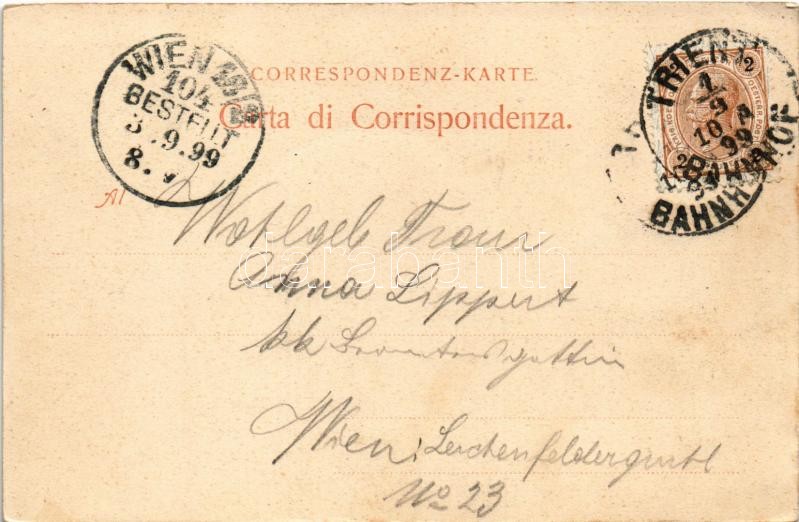 CORRESPONDENZ-KARTE.
Carta di Corrispondenza.
WIEN
104
BESTELLT
3.9.99
8.
TRIENT
1
9
10
99
BAHNHOF
BAHNHOF
2
Al
Wohlgeb Frau
Anna Lippert
kk Beamtensgattin
Wien; Lerchenfeldergürtl
No 23
darabanth